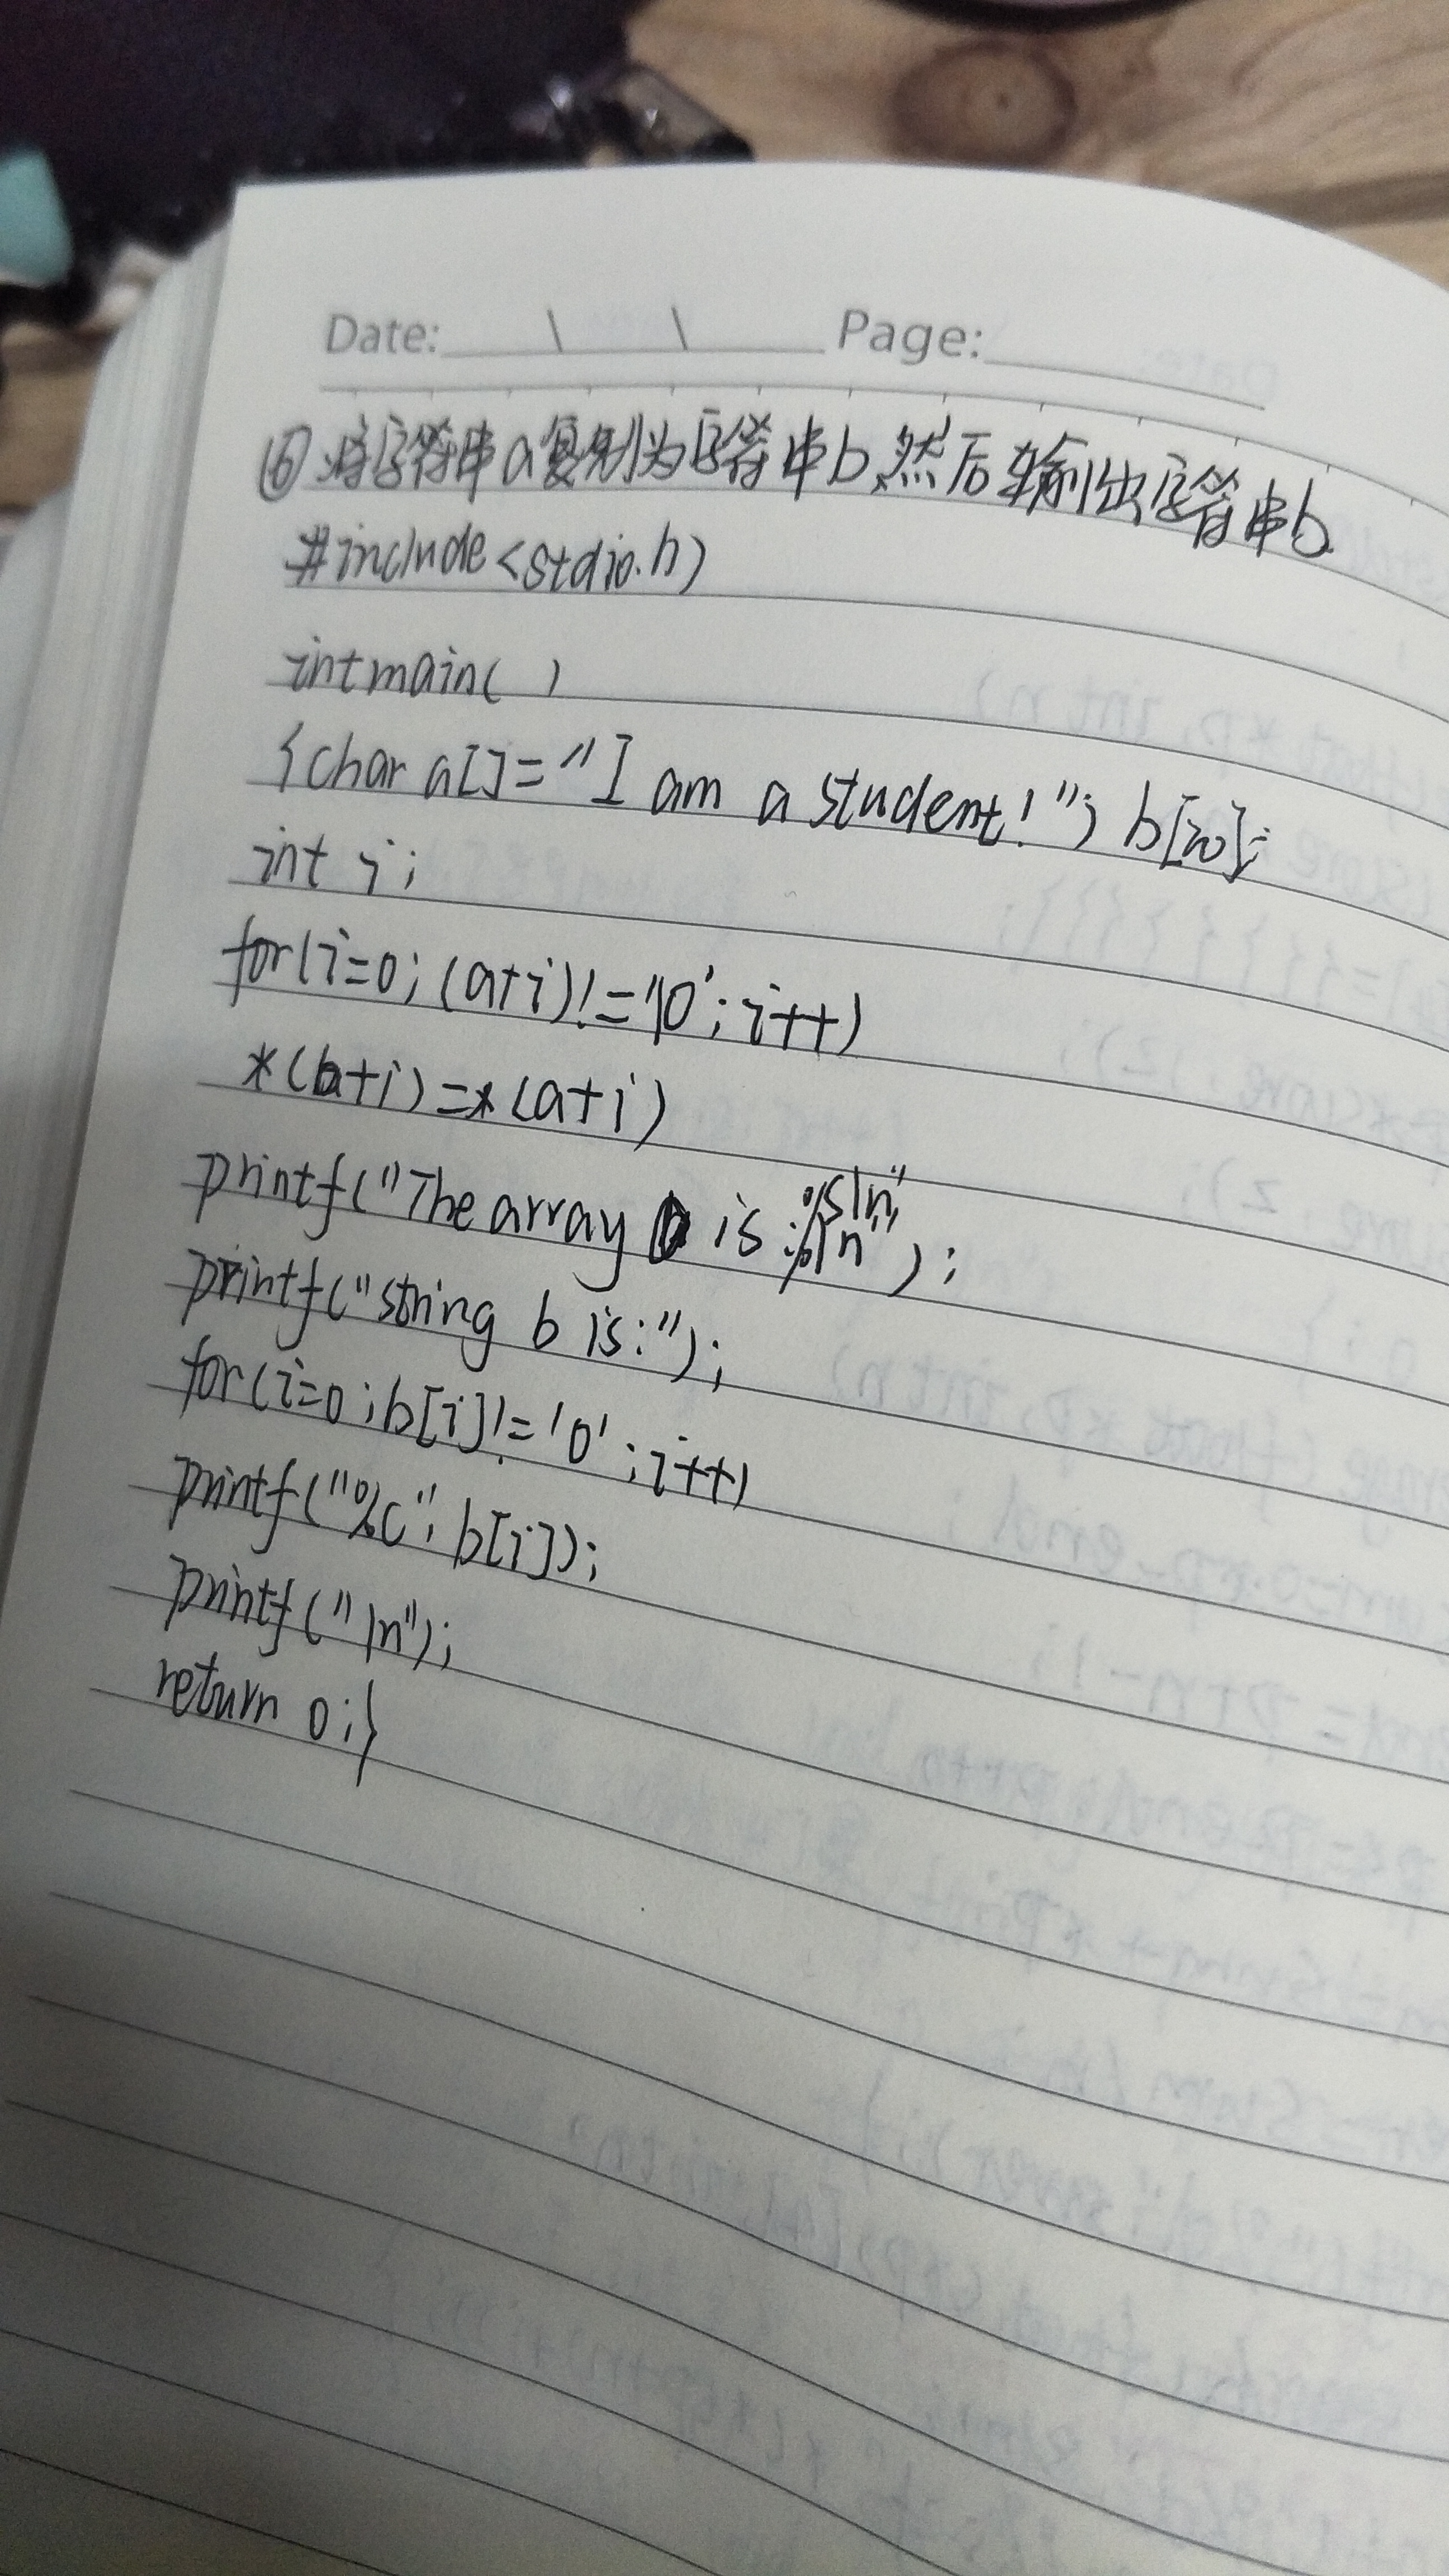 Date: \ \ Page:
⑥将字符串a复制为字符串b,然后输出字符串b.
#include<stdio.h)
int main( )
{char a[]="I am a student!"; b[20];
int i;
for(i=0;(a+i)!='\0';i++)
*(b+i)=*(a+i)
printf("The array is :%s\n");
printf("string b is:");
for(i=0;b[i]!='0';i++)
printf("%c"; b[i]);
printf("\n");
return 0;}